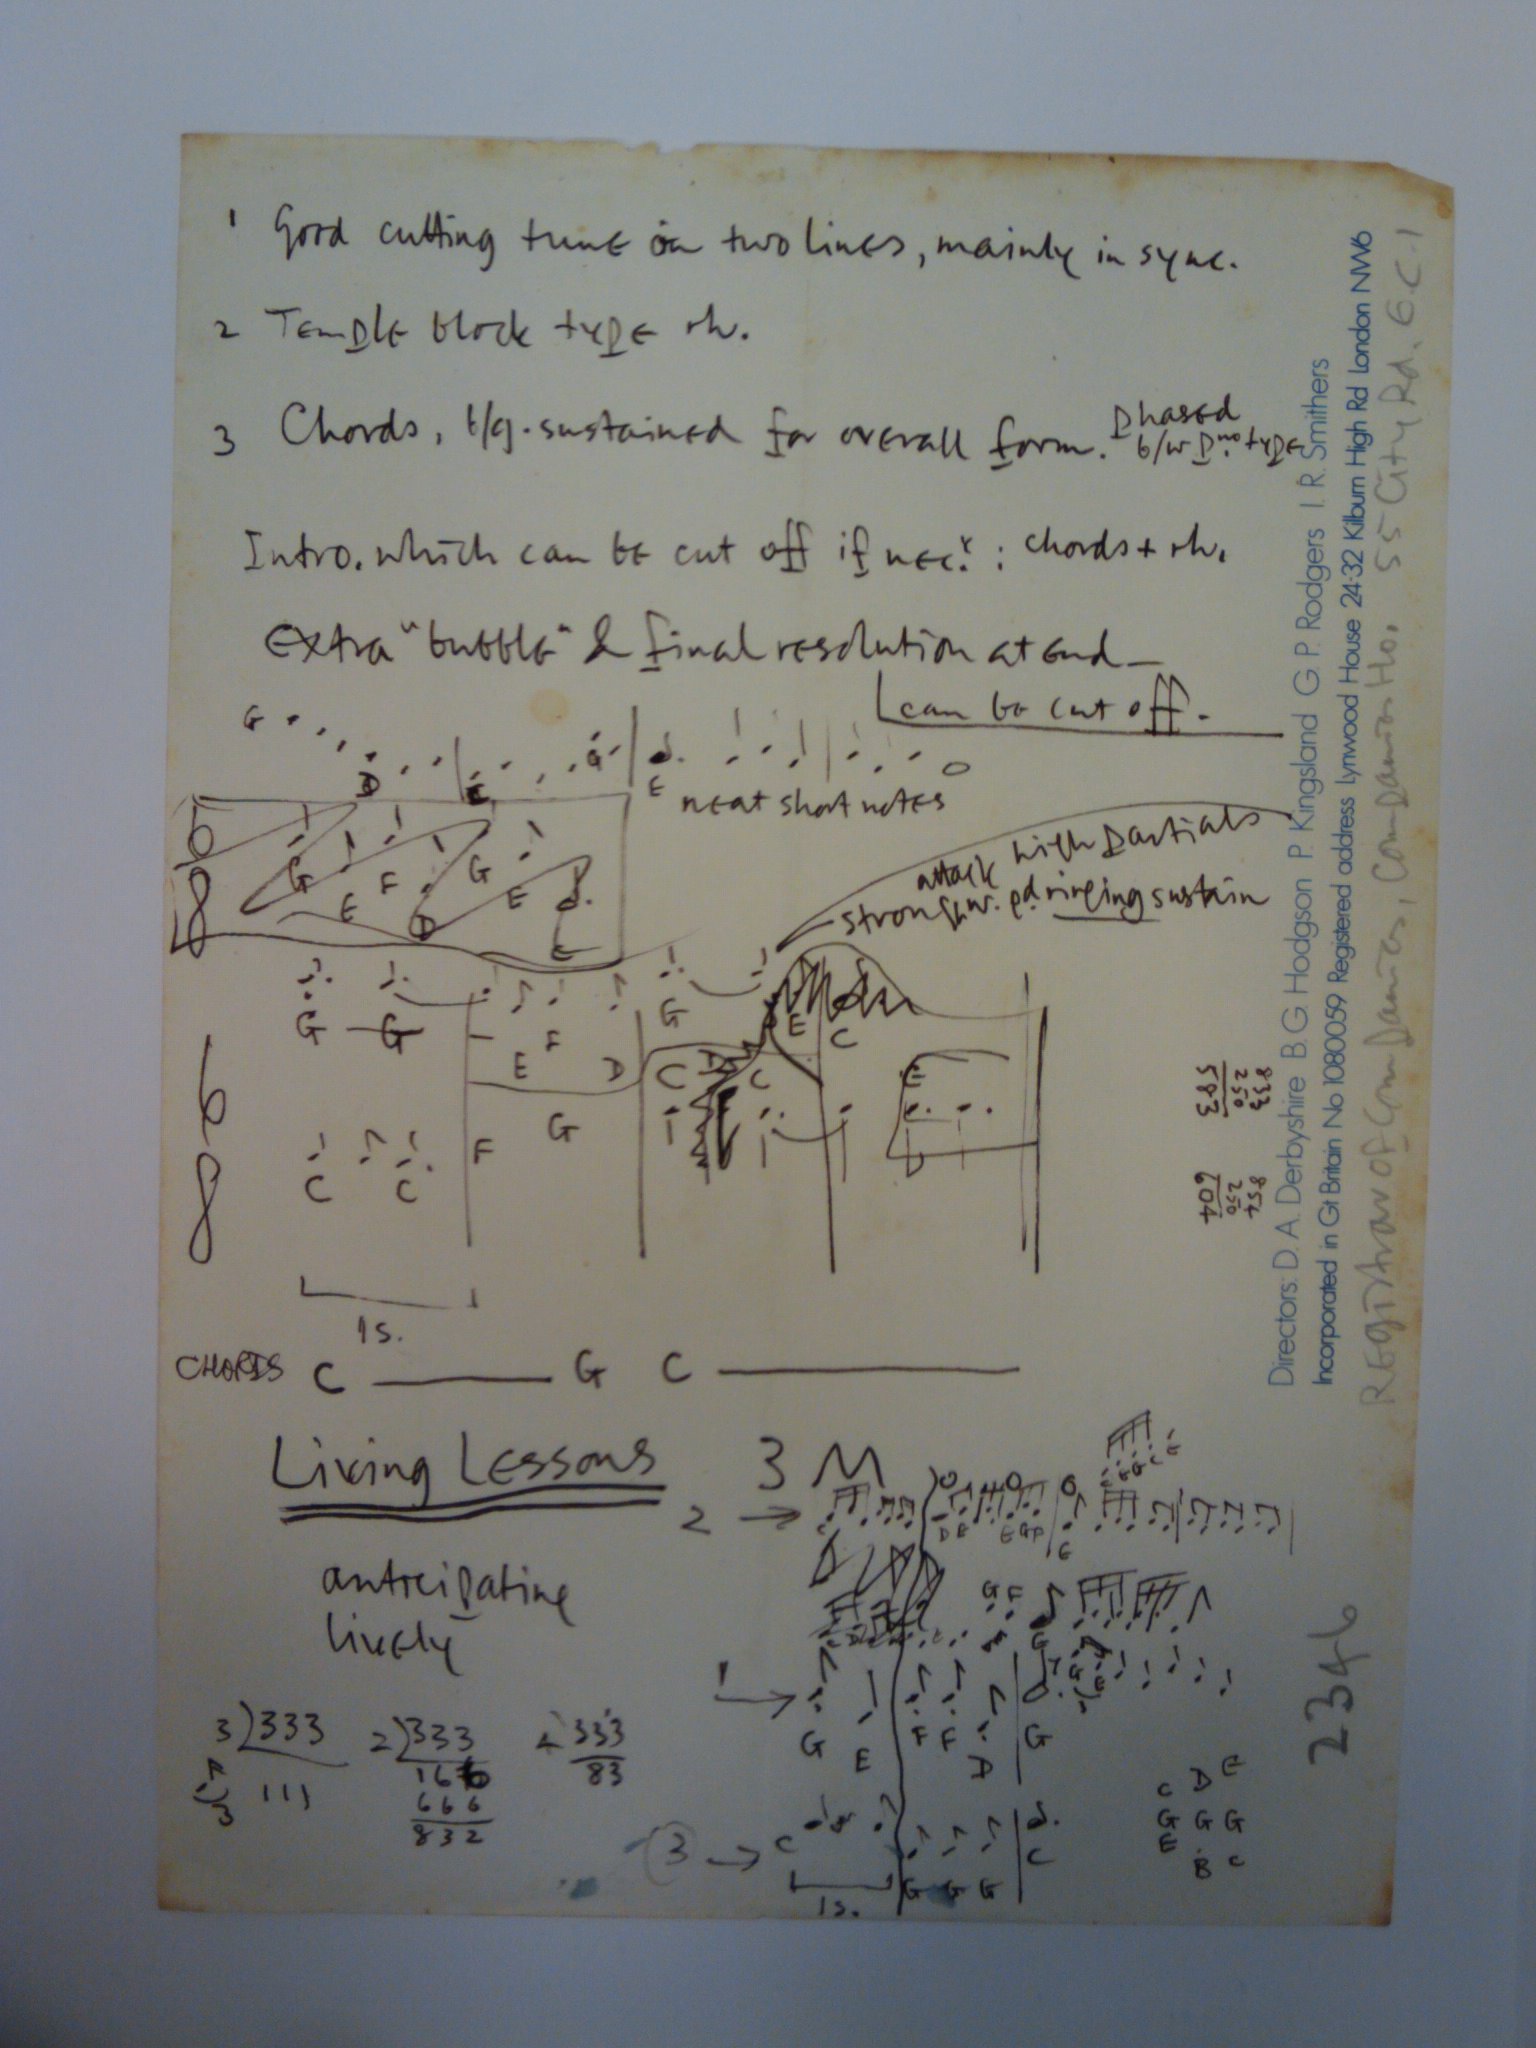 1 Good cutting tune on two lines, mainly in sync.
2 Temple block type rh.
3 Chords, b/g. sustained for overall form. Phased
b/w pno. type
Intro. which can be cut off if necy. : chords + rh.
Extra "bubble" & final resolution at end —
can be cut off.
G
D C G E
neat short notes
high partials
attack
strong ringing sustain
6
8
G E F D G E E
G G E F D G C D C E C
6
8
C C F G E
1s.
CHORDS C — G C —
Living Lessons 3 M
2 →
D E E G F E
anticipating
lively
G F G
1 →
G E F F D G
3)333
111
2)333
166
666
832
4 333
83
3 → C G G G C
1s.
C D E
G G G
E B C
833
250
583
854
250
604
Directors: D. A. Derbyshire B. G. Hodgson P. Kingsland G. P. Rodgers I. R. Smithers
Incorporated in Gt Britain No 1080059 Registered address Lynwood House 24-32 Kilburn High Rd London NW6
Registrar of Companies, Companies Ho. 55 City Rd. E.C.1
2346